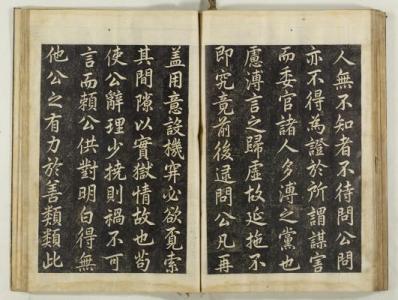 人無不知者不待問公問
亦不得為證於所謂謀害
而委官諸人多溥之黨也
慮溥言之歸虛故延拖不
即究竟前後逮問公凡再
盖用意設機穽必欲覔索
其間隙以實獄情故也茍
使公辭理少撓則禍不可
言而頼公供對明白得無
他公之有力於善類類此